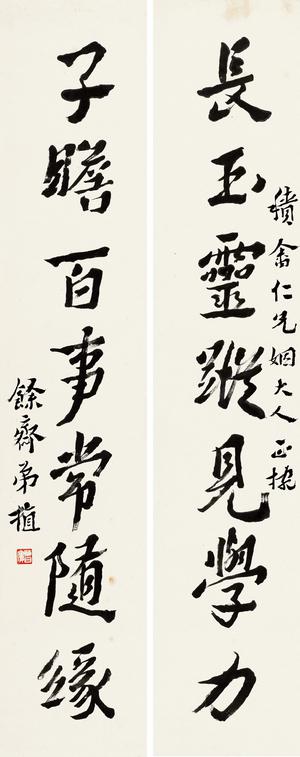 積畬仁兄姻大人正
長玉靈蹤見學力
子瞻百事常隨緣
餘齋弟植